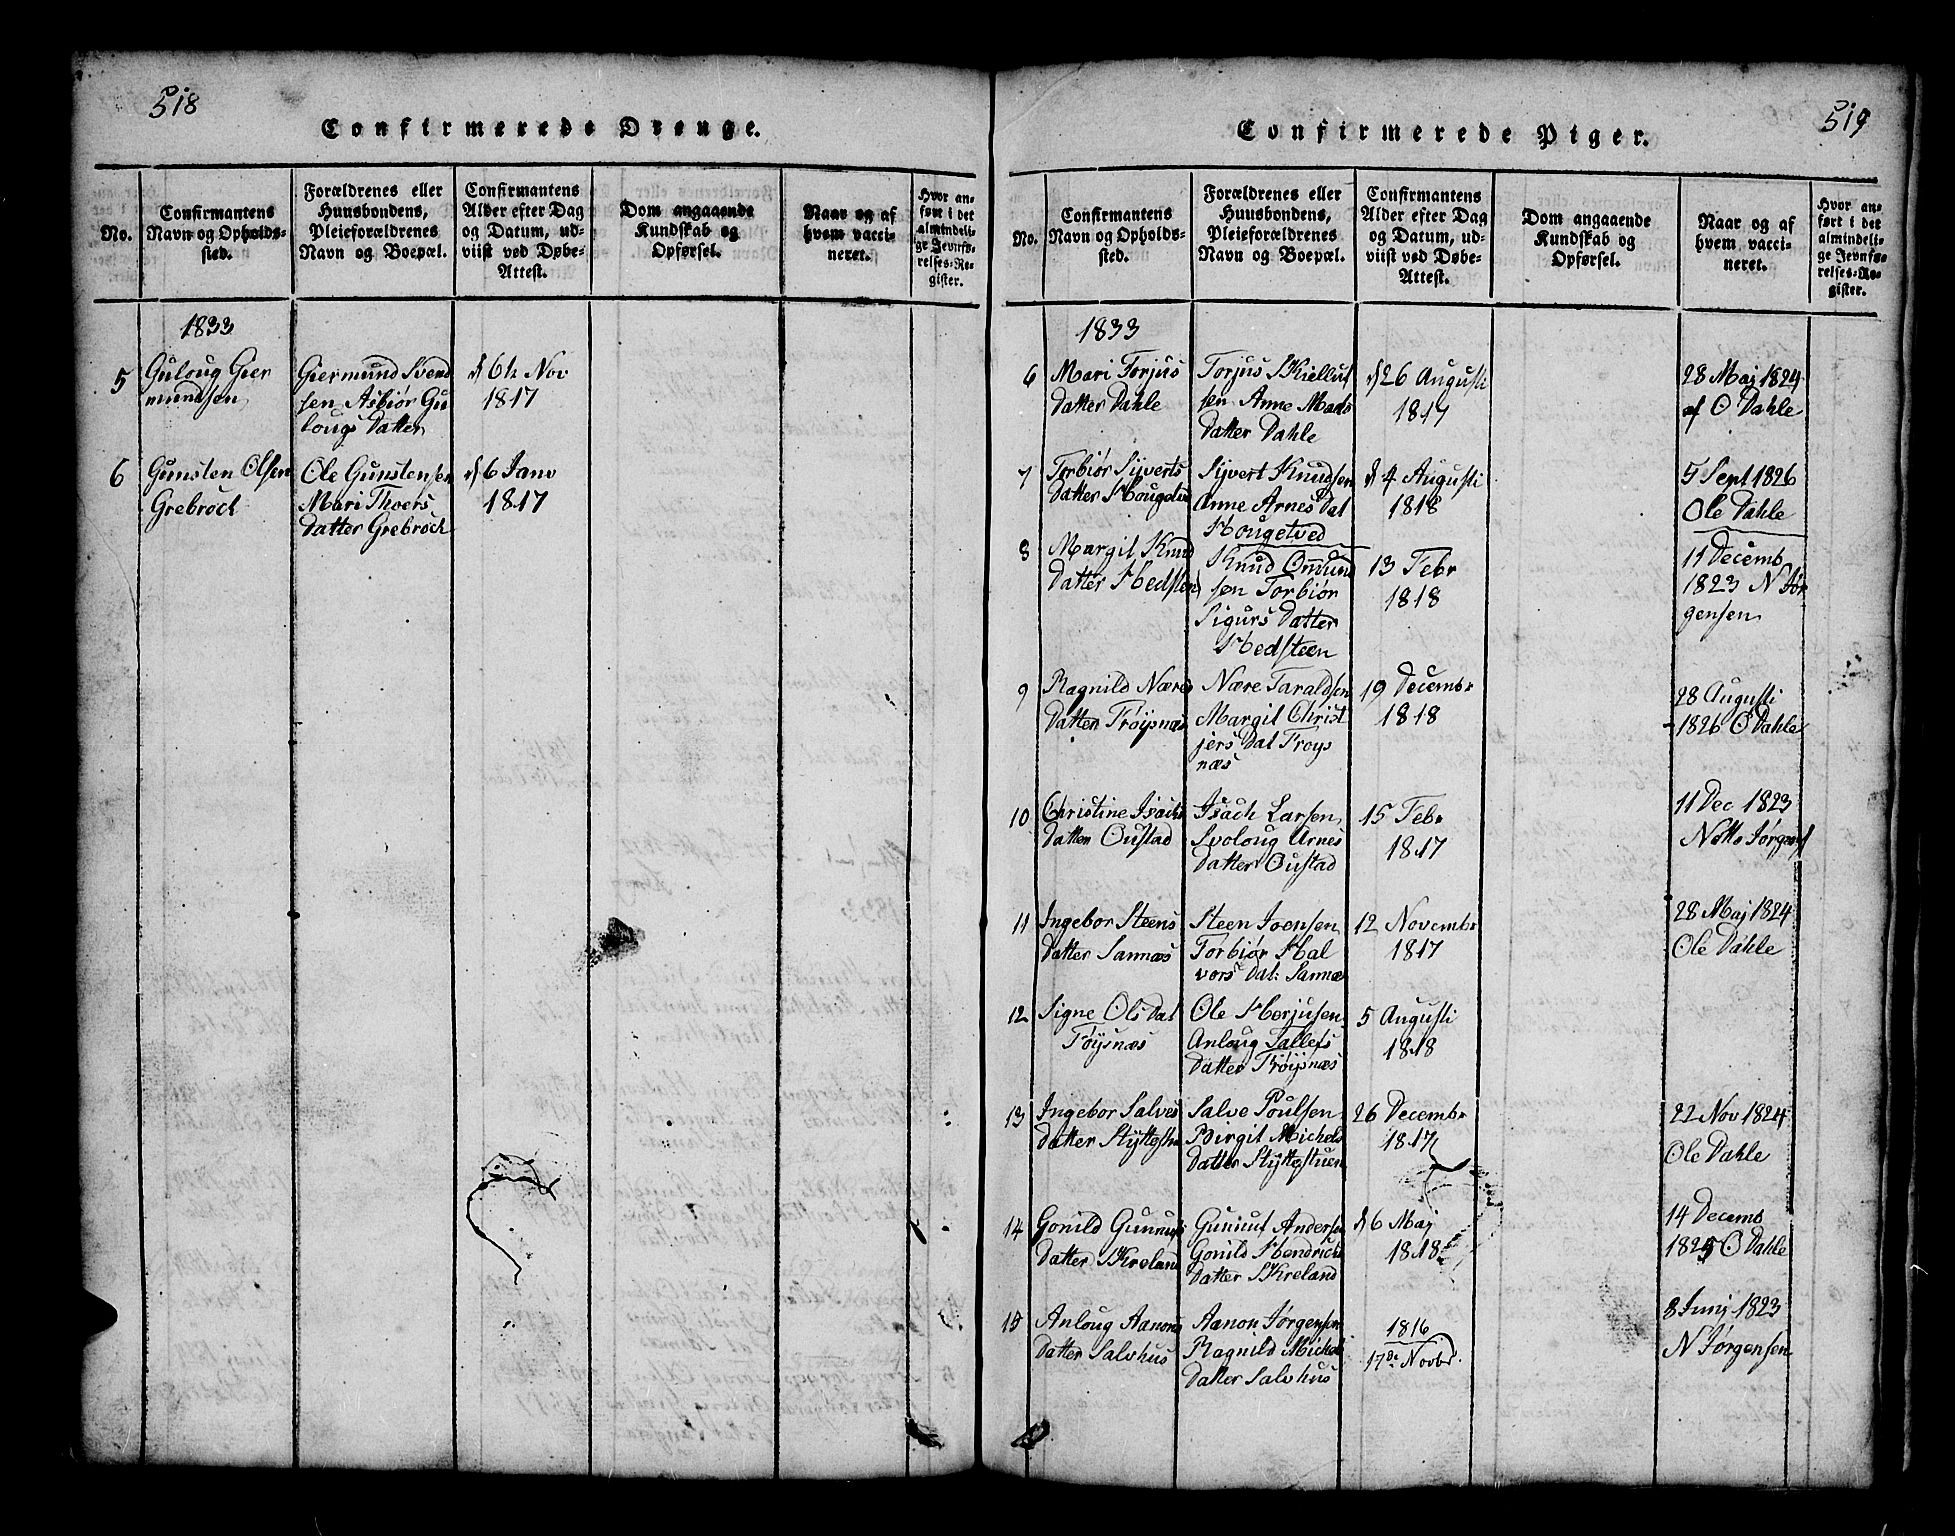 518
Confirmerede Drenge.
No.
Confirmantens
Navn og Opholds-
sted.
Forældrenes eller
Huusbondens,
Pleieforældrenes
Navn og Boepæl.
Confirmantens
Alder efter Dag
og Datum, ud-
viist ved Døbe-
Attest.
Dom angaaende
Kundskab og
Opførsel.
Naar og af
hvem vacci-
neret.
Hvor an-
ført i det
almindeli-
ge Jevnfø-
relses-Re-
gister.
1833
5
Guloug Gier
mundsen
Giermund Svend
sen Asbiør Gu
lougs Datter
6th Nov
1817
6
Gunsten Olsen
Grebroch
Ole Gunstensen
Mari Thoers
Datter Grebroch
6 Janv
1817
519
Confirmerede Piger.
No.
Confirmantens
Navn og Opholds-
sted.
Forældrenes eller
Huusbondens,
Pleieforældrenes
Navn og Boepæl.
Confirmantens
Alder efter Dag
og Datum, ud-
viist ved Døbe-
Attest.
Dom angaaende
Kundskab og
Opførsel.
Naar og af
hvem vacci-
neret.
Hvor an-
ført i det
almindeli-
ge Jevnfø-
relses-Re-
gister.
1833
6
Mari Torjus
Datter Dahle
Torjus Skiellus
sen Anne Mads
Datter Dahle
26 Augusti
1817
28 Maj 1824
af O Dahle
7
Torbiør Syverts
Datter Hougetve
Syvert Knudsen
Anne Arnes Dat
Hougetved
4 Augusti
1818
5 Sept 1826
Ole Dahle
8
Margit Knud
Datter Hedsten
Knud Omund
sen Torbiør
Sigurs Datter
Hedsteen
13 Febr
1818
11 Decemb
1823 N Jør
gensen
9
Ragnild Næres
Datter Frøysnæs
Nære Taraldsen
Margit Christ
jers Dat Froys
næs
19 Decembr
1818
28 Augusti
1826 O Dahle
10
Christine Isachs
Datter Oustad
Isach Larsen
Svoloug Arnes
Datter Oustad
15 Febr
1817
11 Dec 1823
Notto Jørgens
11
Ingebor Steens
Datter Sannæs
Steen Joensen
Torbiør Hal
vors Dat: Sannæ
12 Novembr
1817
28 Maj 1824
Ole Dahle
12
Signe Ols Dat
Frøysnæs
Ole Herjusen
Anloug Tallefs
Datter Frøysnæs
5 Augusti
1818
13
Ingebor Salves
Datter Styttestu
Salve Poulsen
Birgit Michels
Datter Styttestuen
26 Decembr
1817
22 Nov 1824
Ole Dahle
14
Gonild Gunnus
Datter Skreland
Gunnut Andersen
Gonild Hendrichs
Datter Skreland
6 Maj
1818
14 Decemb
1825 O Dahle
15
Anloug Aanons
Datter Salvhus
Aanon Jørgensen
Ragnild Michels
Datter Salvhus
1816
17de Novbr.
8 Junij 1823
N Jørgensen